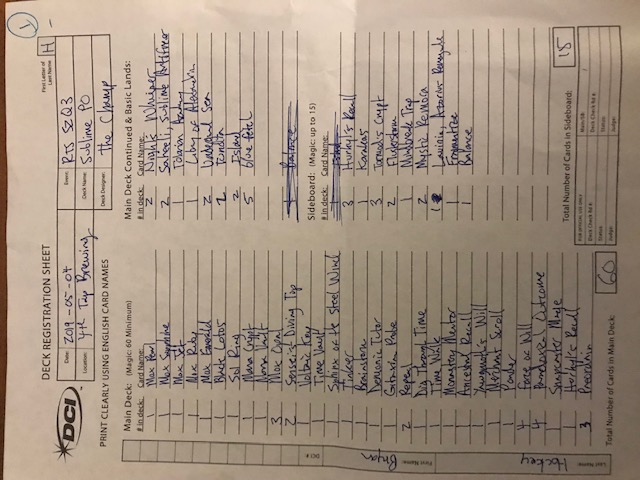 1
DECK REGISTRATION SHEET
First Letter of Last Name: H
DCI
Date: 2019-05-04
Event: RTS SZQ3
Location: 4th Tap Brewing
Deck Name: Sublime PO
Deck Designer: The Champ
PRINT CLEARLY USING ENGLISH CARD NAMES
Main Deck: (Magic: 60 Minimum)
# in deck: Card Name:
1 Mox Pearl
1 Mox Sapphire
1 Mox Jet
1 Mox Ruby
1 Mox Emerald
1 Black Lotus
1 Sol Ring
1 Mana Crypt
1 Mana Vault
3 Mox Opal
2 Sensei's Divining Top
1 Voltaic Key
1 Time Vault
1 Sphinx of the Steel Wind
1 Tinker
1 Brainstorm
1 Demonic Tutor
1 Gitaxian Probe
2 Repeal
1 Dig Through Time
1 Time Walk
1 Monastery Mentor
1 Ancestral Recall
1 Yawgmoth's Will
1 Merchant Scroll
1 Ponder
4 Force of Will
4 Paradoxical Outcome
1 Snapcaster Mage
1 Hurkyl's Recall
3 Preordain
Total Number of Cards in Main Deck: 60
Main Deck Continued & Basic Lands:
# in deck: Card Name:
2 Night's Whisper
2 Saheeli, Sublime Artificer
1 Tolarian Academy
1 Library of Alexandria
2 Underground Sea
2 Tundra
2 Island
5 blue fetch
1 Balance
Sideboard: (Magic: up to 15)
# in deck: Card Name:
3 Hurkyl's Recall
1 Karakas
3 Tormod's Crypt
2 Flusterstorm
1 Mindbreak Trap
2 Mystic Remora
1 Lavinia, Azorius Renegade
1 Engineered
1 Balance
Total Number of Cards in Sideboard: 15
FOR OFFICIAL USE ONLY
Main/SB:
Deck Check Rd #:
Deck Check Rd #:
Status:
Status:
Judge:
Judge:
DCI #:
First Name: Bryan
Last Name: Hockey